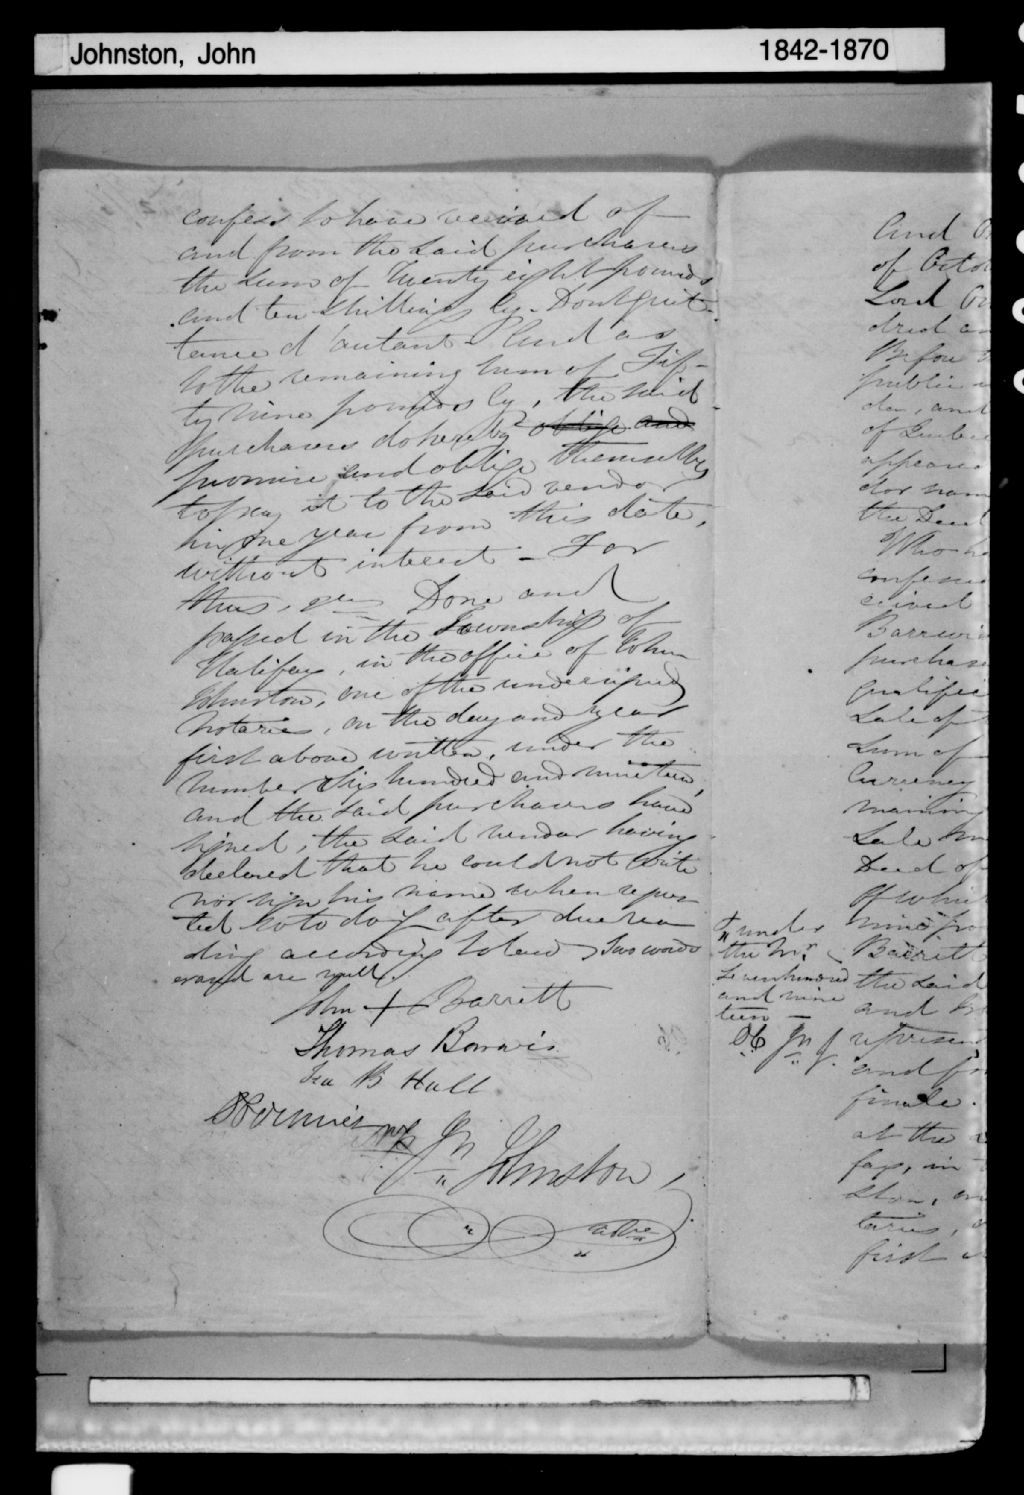 Johnston, John
1842-1870
confess to have received of
and from the said purchasers
the sum of Twenty eight pounds
and ten shillings Cy. Dont quit-
tance d'autant - And as
to the remaining sum of Fif-
ty nine pounds Cy, the said
purchasers do hereby oblige and
promise and oblige themselves
to pay it to the said vendor
in one year from this date,
without interest - For
thus, &c Done and
passed in the Township of
Halifax, in the office of John
Johnston, one of the undersigned
Notaries, on the day and year
first above written, under the
number Six hundred and nineteen,
and the said purchasers have
signed, the said vendor having
declared that he could not write
nor sign his name when reques-
ted so to do, after due rea-
ding according to law, two words
erased are null.
John + Barrett
Thomas Barwis
Ira B Hall
Jn Johnston
under
the No.
hundred
and nine
teen -
Jn J.
And
of Octo
Lord
dred an
Before
public
and
of Quebec
appeared
dor nam
the Deed
Who h
confess
ceived
Barwis
purchase
qualifie
Sale of
Sum of
Currency
maining
Sale
Deed of
Of which
nine po
Barrett
the said
and
represen
and fo
finale.
at the
fax, in
ston, on
taries,
first a